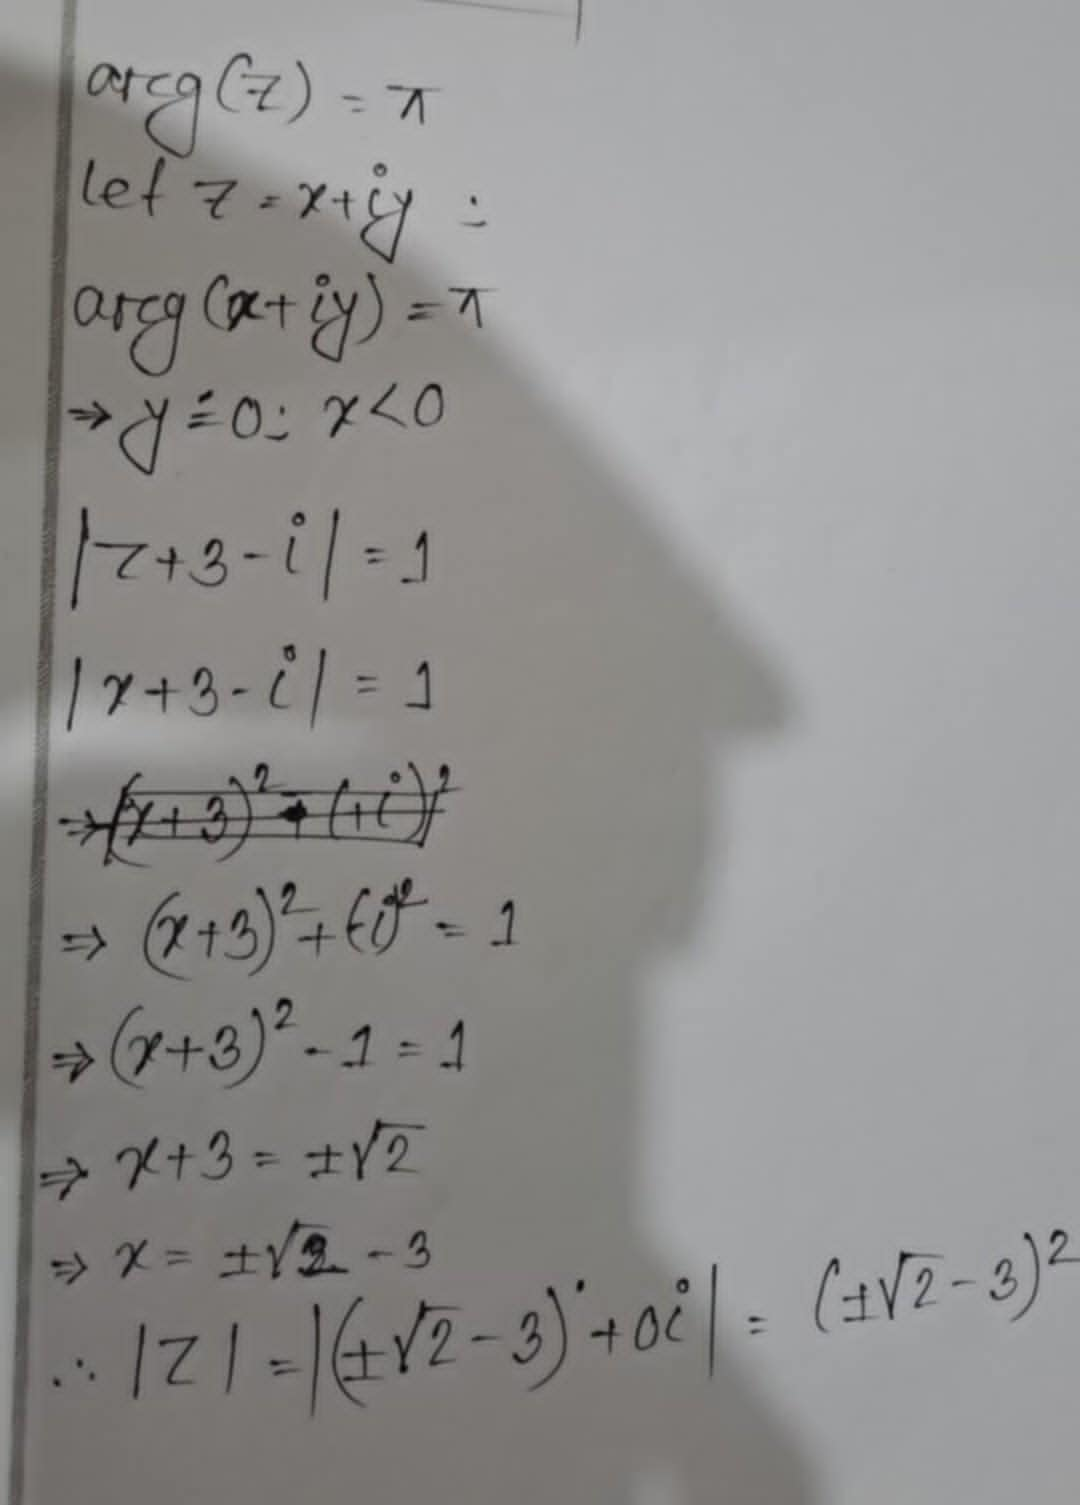 arg(z) = π
let z = x+iy :
arg(x+iy) = π
⇒ y = 0 : x<0
|z+3-i| = 1
|x+3-i| = 1
⇒ (x+3)² + (+i)²
⇒ (x+3)² + (-i)² = 1
⇒ (x+3)² - 1 = 1
⇒ x+3 = ±√2
⇒ x = ±√2 - 3
∴ |z| = |(±√2-3) + 0i| = (±√2-3)²